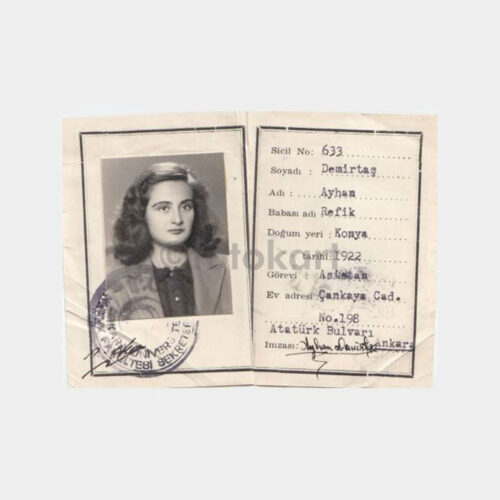 Sicil No: 633
Soyadı : Demirtaş
Adı : Ayhan
Babası adı : Refik
Doğum yeri : Konya
" tarihi: 1922
Görevi : Asistan
Ev adresi: Çankaya Cad.
No.198
Atatürk Bulvarı
İmzası: Ankara
ÜNİVERSİTE
SEKRETER